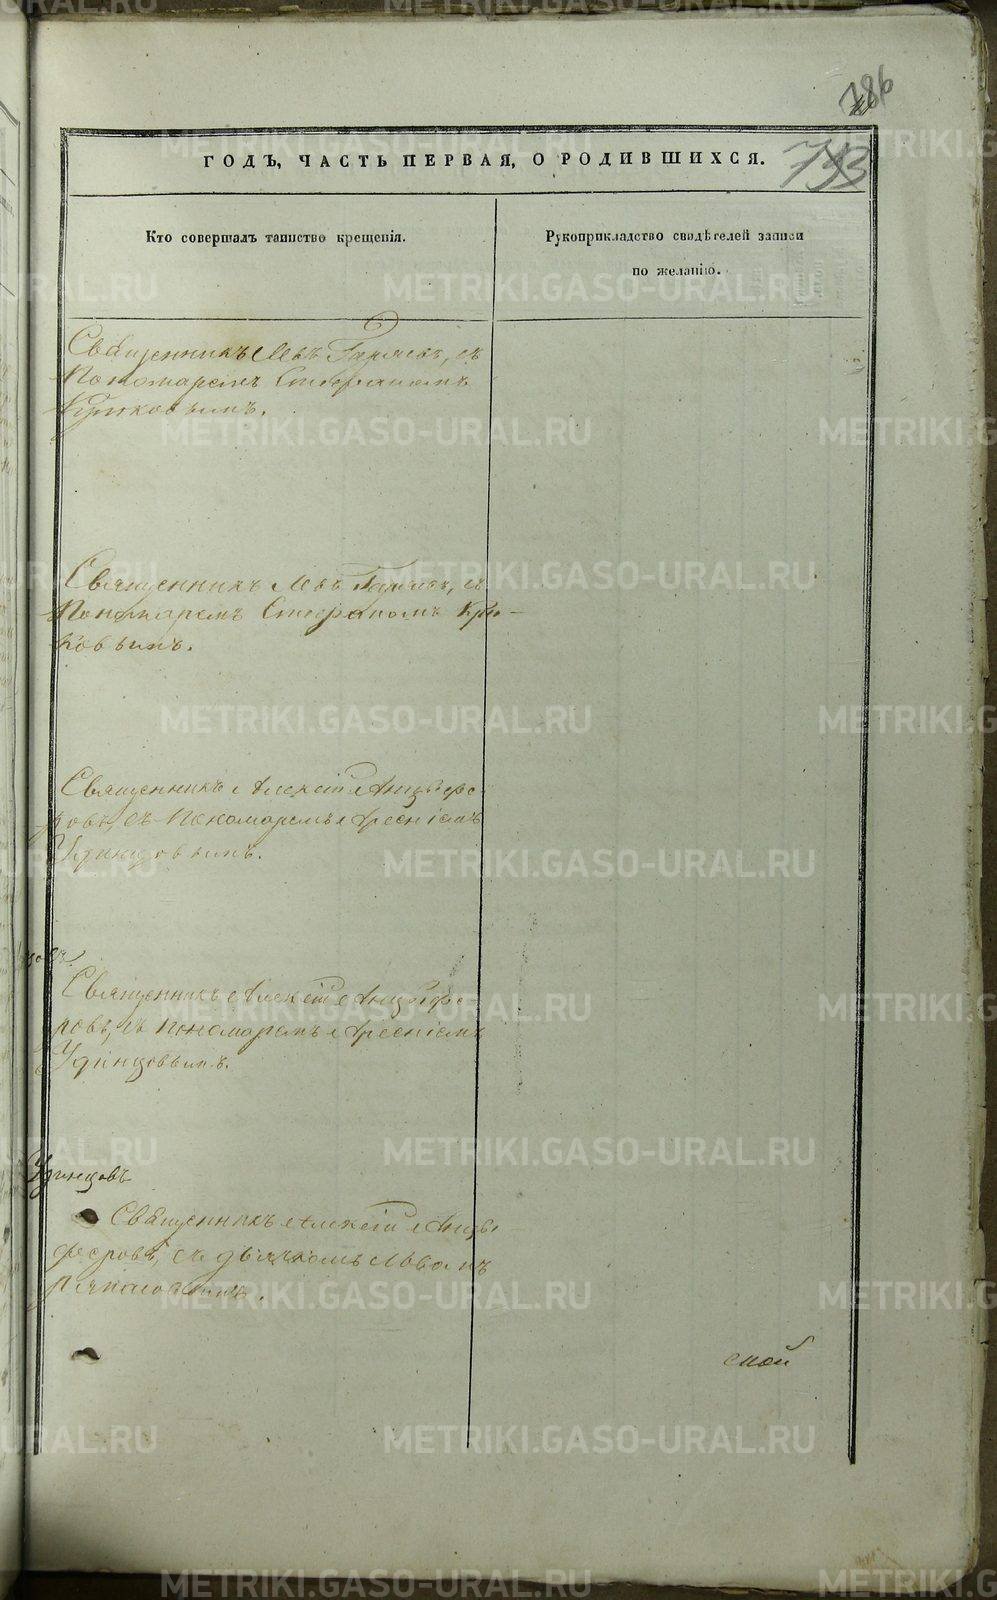 786
733
ГОДЪ, ЧАСТЬ ПЕРВАЯ, О РОДИВШИХСЯ.
Кто совершалъ таинство крещенія.
Рукоприкладство свидѣтелей записи
по желанію.
Священникъ Левъ съ
Пономаремъ Стефаномъ
Крюковымъ.
Священникъ Левъ съ
Пономаремъ Стефаномъ Крю-
ковымъ.
Священникъ Алексій Анцыфе-
ровъ, съ Пономаремъ Арсеніемъ
Удинцовымъ.
Священникъ Алексій Анцыфе-
ровъ, съ Пономаремъ Арсеніемъ
Удинцовымъ.
Удинцовъ
Священникъ Алексій Анцы-
феровъ, съ дьячкомъ
ской
METRIKI.GASO-URAL.RU